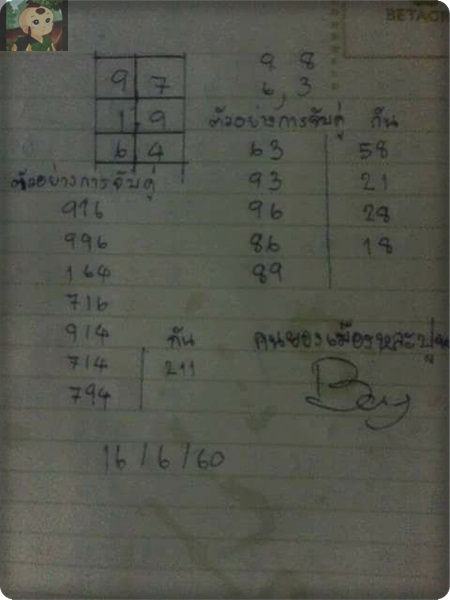 BETAGR
9 7
1 9
6 4
9 8
6, 3
ตัวอย่างการจับคู่
916
996
164
716
914
714
794
กัน
211
ตัวอย่างการจับคู่ กัน
63 58
93 21
96 28
86 18
89
คนของเมืองหละปูน
Boy
16/6/60